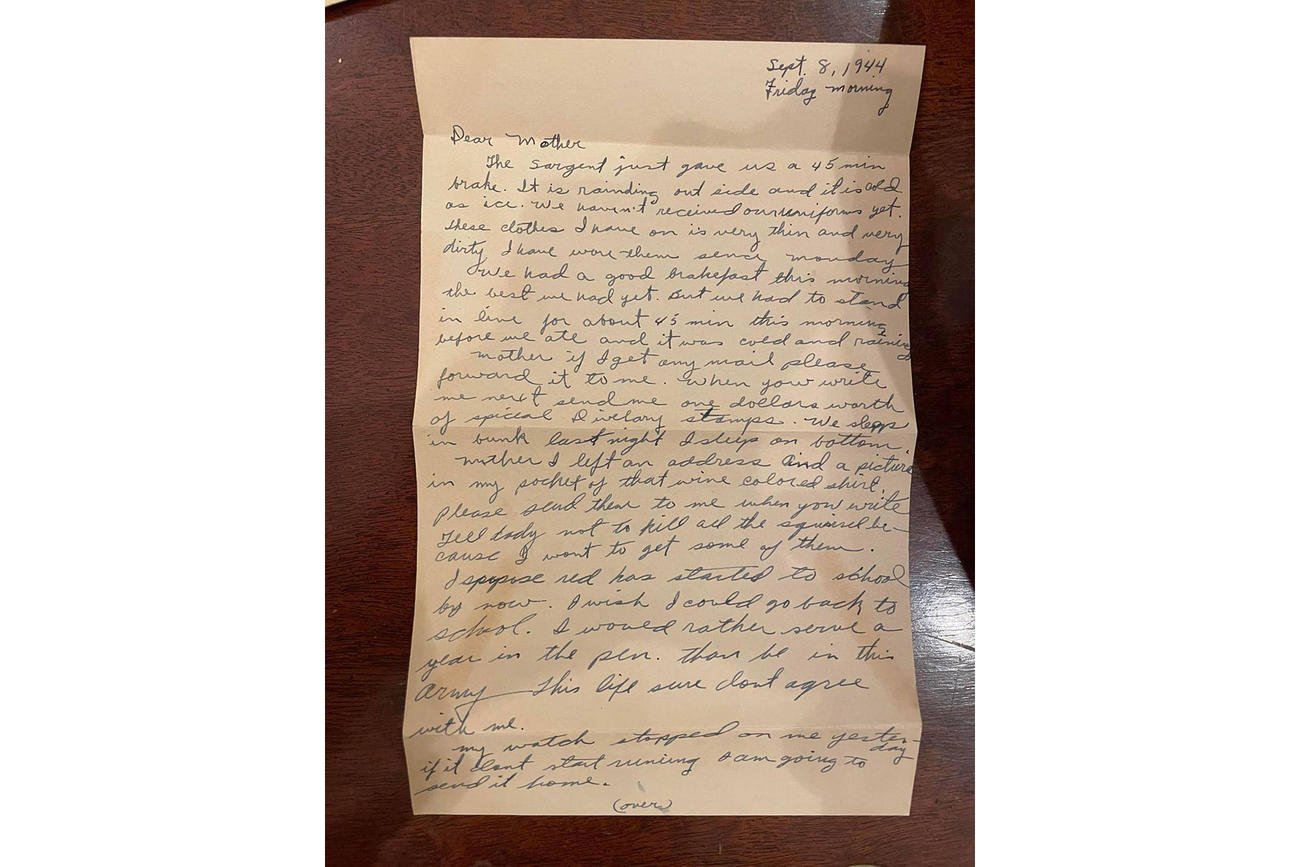 Sept. 8, 1944
Friday morning
Dear Mother
The Sargent just gave us a 45 min
brake. It is rainding out side and it is cold
as ice. We haven't received our uniforms yet.
these clothes I have on is very thin and very
dirty I have wore them senci monday
We had a good brakefast this morning
the best we had yet. But we had to stand
in line for about 45 min this morning
before we ate and it was cold and raining
mother if I get any mail please
forward it to me. When you write
me next send me one dollars worth
of spicial Divelary stamps. We sleeps
in bunk last night I sleep on bottom.
mother I left an address and a picture
in my pocket of that wine colored shirt.
Please send them to me when you write
Tell dady not to kill all the squirrel be-
cause I want to get some of them.
I suppise red has started to school
by now. I wish I could go back to
school. I would rather serve a
year in the pen. than be in this
Army This life sure dont agree
with me.
my watch stopped on me yester-
day
if it dont start runing I am going to
send it home.
(over)